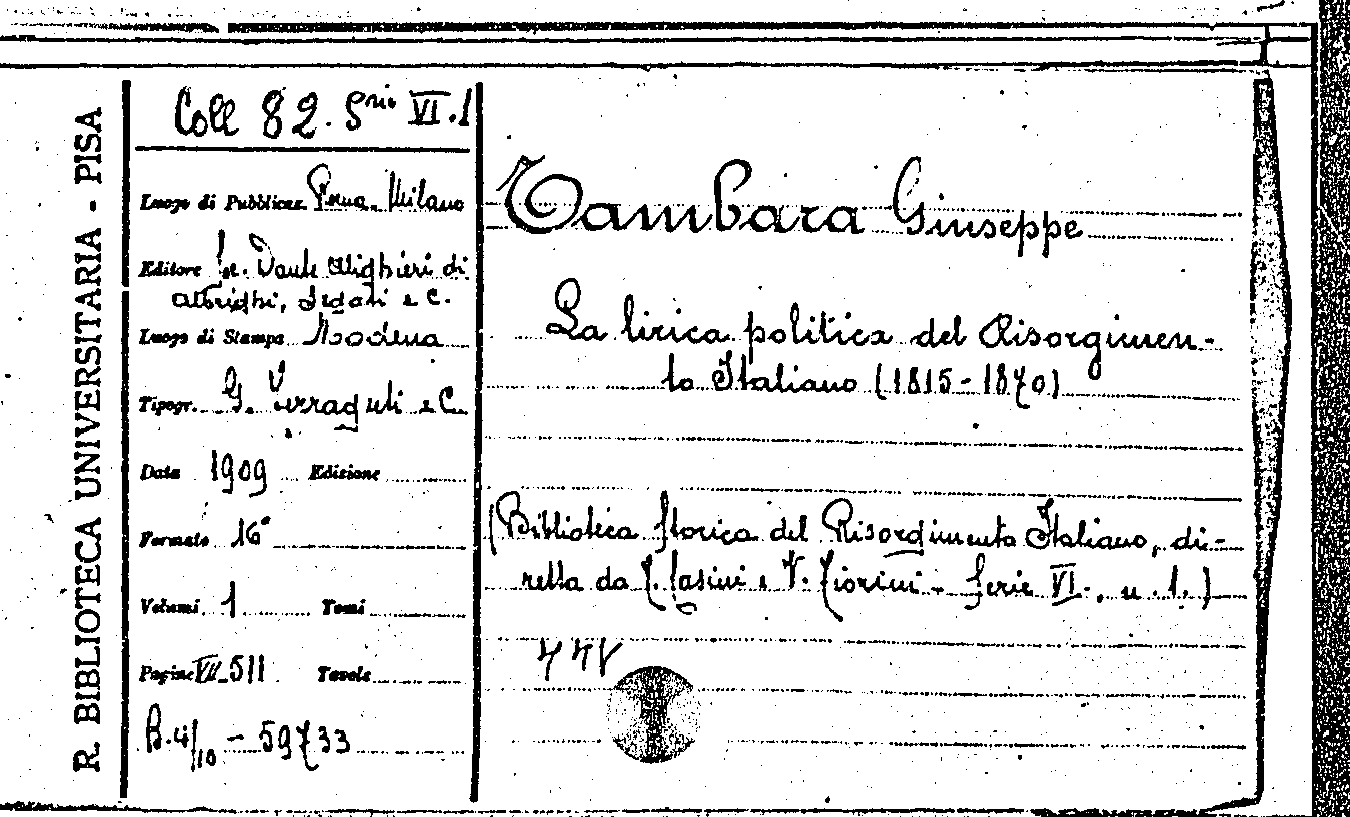 R. BIBLIOTECA UNIVERSITARIA - PISA
Coll 82. Srie VI.1
Luogo di Pubblicaz. Roma. Milano
Editore Se. Dante Alighieri di
Albrighi, Segati e C.
Luogo di Stampa Modena
Tipogr. G. Ferraguti e C.
Data 1909 Edizione
Formato 16°
Volumi 1 Tomi
Pagine VII-511 Tavole
B.4/10 - 59733
Tambara Giuseppe
La lirica politica del Risorgimen-
to Italiano (1815-1870)
(Biblioteca storica del Risorgimento Italiano, di-
retta da T. Casini e V. Fiorini - Serie VI., n. 1.)